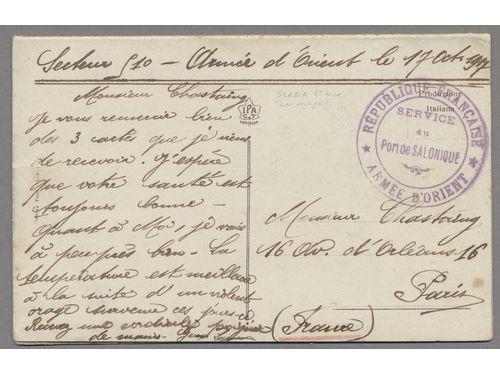 Secteur 510 - Armée d'Orient le 17 Oct. 1917
Monsieur Chastaing
Je vous remercie bien
des 3 cartes que je viens
de recevoir. J'espère
que votre santé est
toujours bonne -
Quant à Moi, je vais
à peu près bien - La
température est meilleure
à la suite d'un violent
orage survenu ces jours-ci.
Recevez une cordiale poignée
de mains.
IPA
CT
Produzione
Italiana
RÉPUBLIQUE FRANÇAISE
SERVICE
du
Port de SALONIQUE
★ ARMÉE D'ORIENT ★
Monsieur Chastaing
16 Av. d'Orléans 16
Paris
(France)